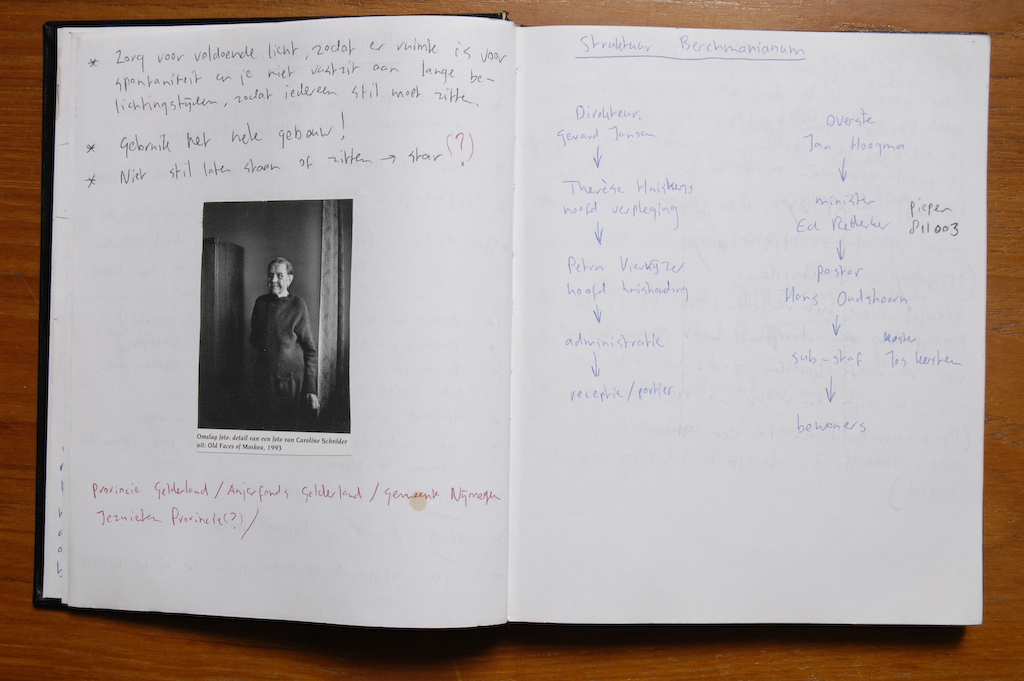 * Zorg voor voldoende licht, zodat er ruimte is voor
spontaniteit en je niet vastzit aan lange be-
lichtingstijden, zodat iedereen stil moet zitten.
* Gebruik het hele gebouw!
* Niet stil laten staan of zitten → star (?)
Omslag foto: detail van een foto van Caroline Schröder
uit: Old Faces of Moskou, 1993
Provincie Gelderland / Anjerfonds Gelderland / Gemeente Nijmegen
Jezuïeten Provincie(?) /
Struktuur Berchmanianum
Direkteur.
Gerard Jansen
↓
Therèse Huiskens
hoofd verpleging
↓
Petra Vierwijzer
hoofd huishouding
↓
administratie
↓
receptie / portier
overste
Jan Hoogma
↓
minister
Ed
pieper
811003
↓
pastor
Hans Oudshoorn
↓
sub-staf
koster
Jos Kersten
↓
bewoners